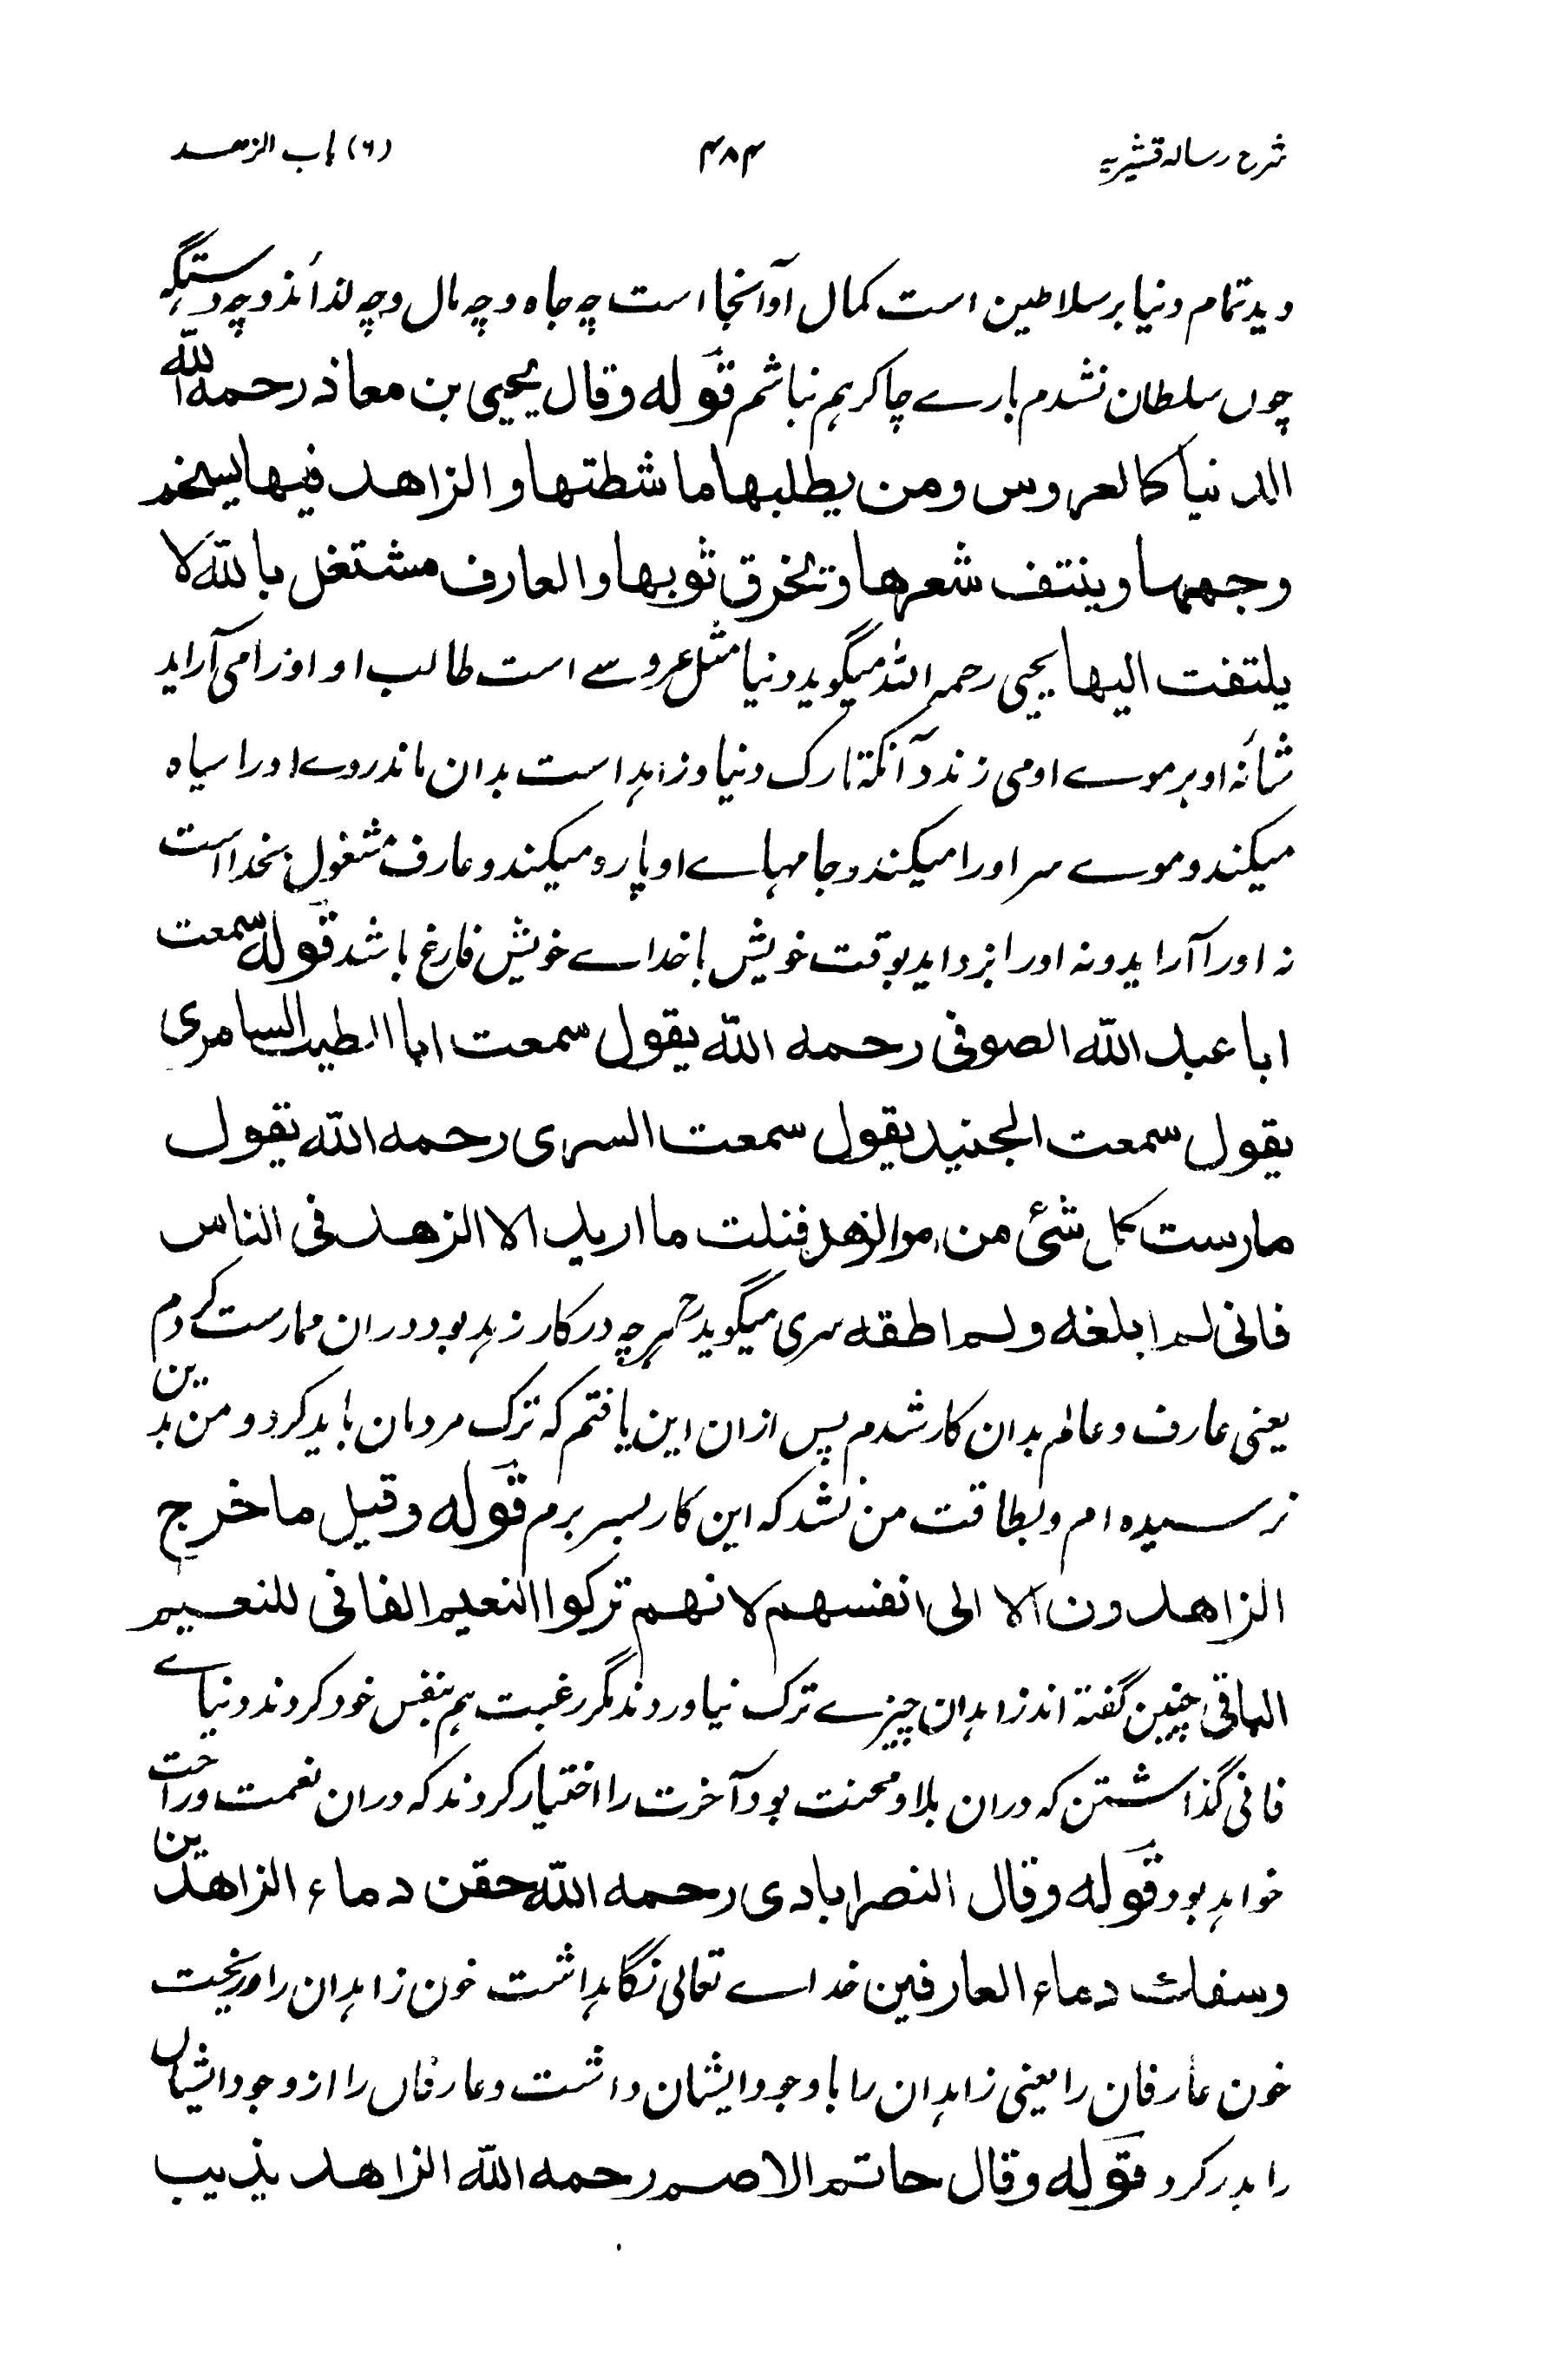 شرح رسالہ قشیریہ ۴۸۴ (۶) باب الزھد
دید تمام دنیا بر سلاطین است کمال او آنجا است چه جاه و چه مال و چه لذائذ و چه دستگہ
چوں سلطان نشدم بارے چاکر ہم نباشم قوله وقال یحیی بن معاذ رحمه الله
الدنیا کالعروس ومن یطلبها ماشطتها والزاهد فیها یسخم
وجهها وینتف شعرها وتخرق ثوبها والعارف مشتغل بالله لا
یلتفت الیها یحیی رحمہ اللہ میگوید دنیا مثل عروسے است طالب او اورا می آراید
شانہ او بر موے او می زند و آنکہ تارک دنیا و زاہد است بدان ماند روے اورا سیاہ
میکند و موے سر اورا میکند و جامہاے او پارہ میکند و عارف مشغول بخدا است
نہ اورا آراید و نہ اورا بزداید بوقت خویش با خداے خویش فارغ باشد قوله سمعت
ابا عبد الله الصوفی رحمه الله یقول سمعت ابا الطیب السامری
یقول سمعت الجنید یقول سمعت السری رحمه الله یقول
مارست کل شئ من امر الزهد فنلت ما ارید الا الزهد فی الناس
فانی لم ابلغه ولم اطقه سری میگوید ہرچہ در کار زہد بود دران ممارست کردم
یعنی عارف و عالم بدان کار شدم پس ازان این یافتم کہ ترک مردمان باید کرد و من بدین
نرسیدہ ام و بطاقت من نشد کہ این کار بسر برم قوله وقیل ما خرج
الزاهدون الا الی انفسهم لانهم ترکوا النعیم الفانی للنعیم
الباقی چنین گفتہ اند زاہدان چیزے ترک نیاوردند مگر رغبت ہم بنفس خود کردند دنیاے
فانی گذاشتن کہ دران بلا و محنت بود آخرت را اختیار کردند کہ دران نعمت و راحت
خواہد بود قوله وقال النصرابادی رحمه الله حقن دماء الزاهدین
وسفک دماء العارفین خداے تعالی نگاہداشت خون زاہدان را و ریخت
خون عارفان را یعنی زاہدان را با وجود ایشان داشت و عارفاں را از وجود ایشاں
را بدر کرد قوله وقال حاتم الاصم رحمه الله الزاهد یذیب